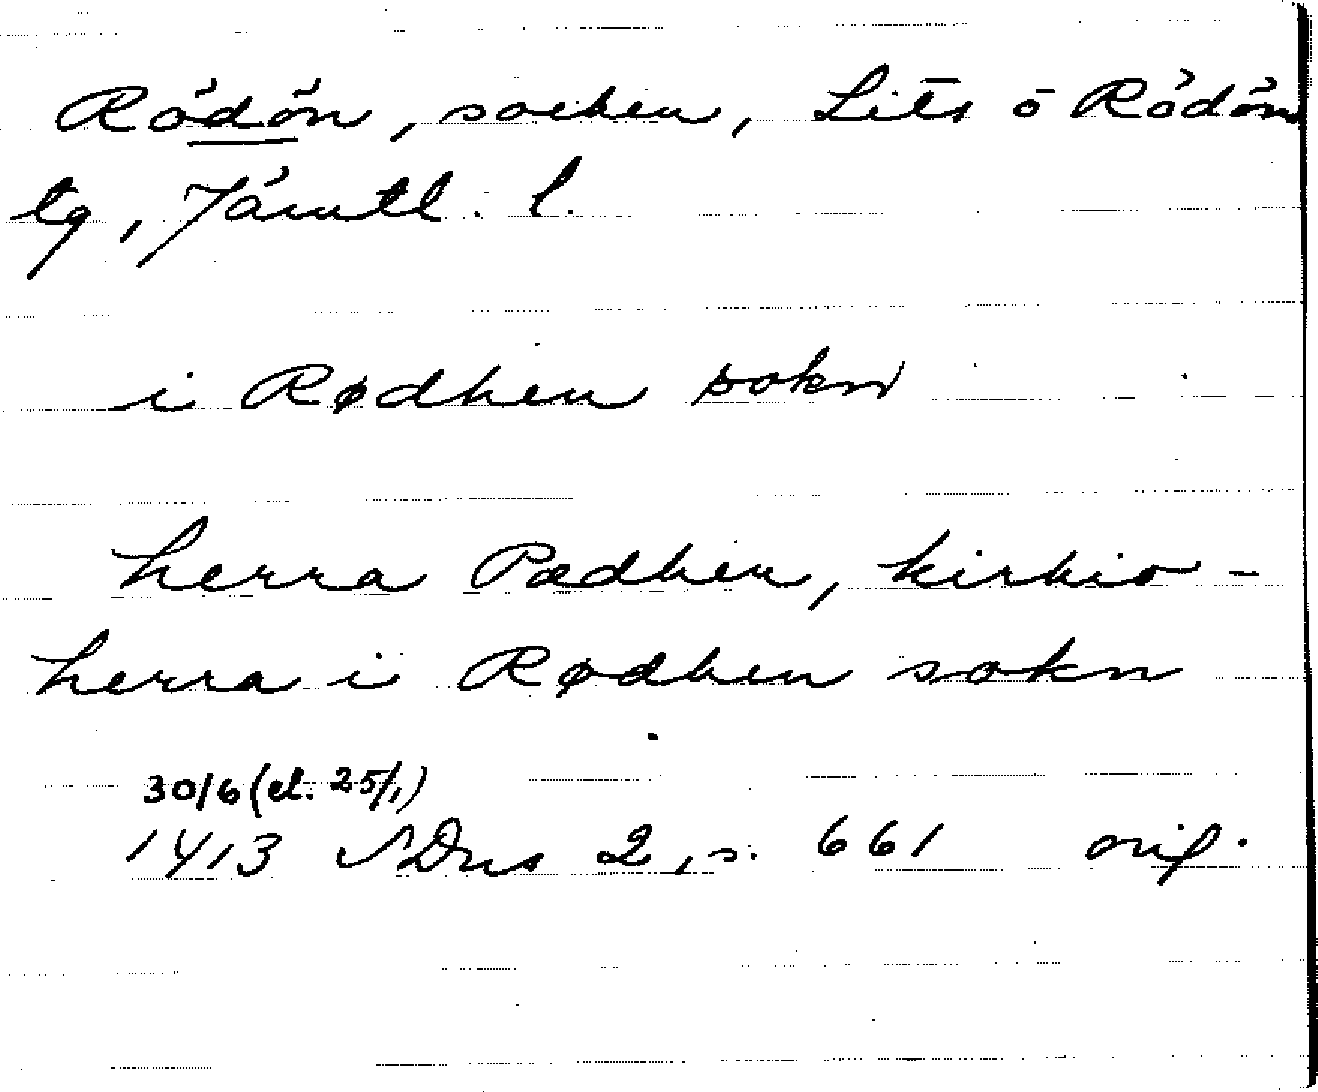 Rödön, socken, Lits o Rödöns
tg, Jämtl. l.
i Rødhen sokn
herra Pædher, kirkio-
herra i Rødhen sokn
30/6 (el. 25/1)
1413 SDns 2, s. 661 orig.